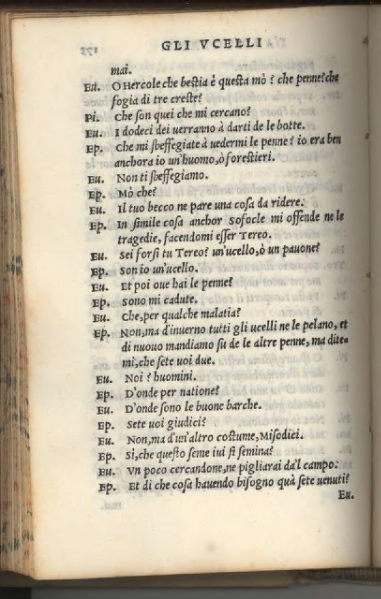 GLI VCELLI
mai.
Eu. O Hercole che bestia è questa mò? che penne? che
fogia di tre creste?
Pi. Che son quei che mi cercano?
Eu. I dodeci dei uerranno à darti de le botte.
Ep. Che mi sbeffegiate à uedermi le penne? io era ben
anchora io un'huomo, ò forestieri.
Eu. Non ti sbeffegiamo.
Ep. Mò che?
Eu. Il tuo becco ne pare una cosa da ridere.
Ep. In simile cosa anchor Sofocle mi offende ne le
tragedie, facendomi esser Tereo.
Eu. Sei forsi tu Tereo? un'ucello, ò un pauone?
Ep. Son io un'ucello.
Eu. Et poi oue hai le penne?
Ep. Sono mi cadute.
Eu. Che, per qualche malatia?
Ep. Non, ma d'inuerno tutti gli ucelli ne le pelano, et
di nuouo mandiamo fu de le altre penne, ma dite
mi, che sete uoi due.
Eu. Noi? huomini.
Ep. D'onde per natione?
Eu. D'onde sono le buone barche.
Ep. Sete uoi giudici?
Eu. Non, ma d'un'altro costume, Misodici.
Ep. Si, che questo seme iui si semina?
Eu. Vn poco cercandone, ne pigliarai da'l campo.
Ep. Et di che cosa hauendo bisogno quà sete uenuti?
Eu.